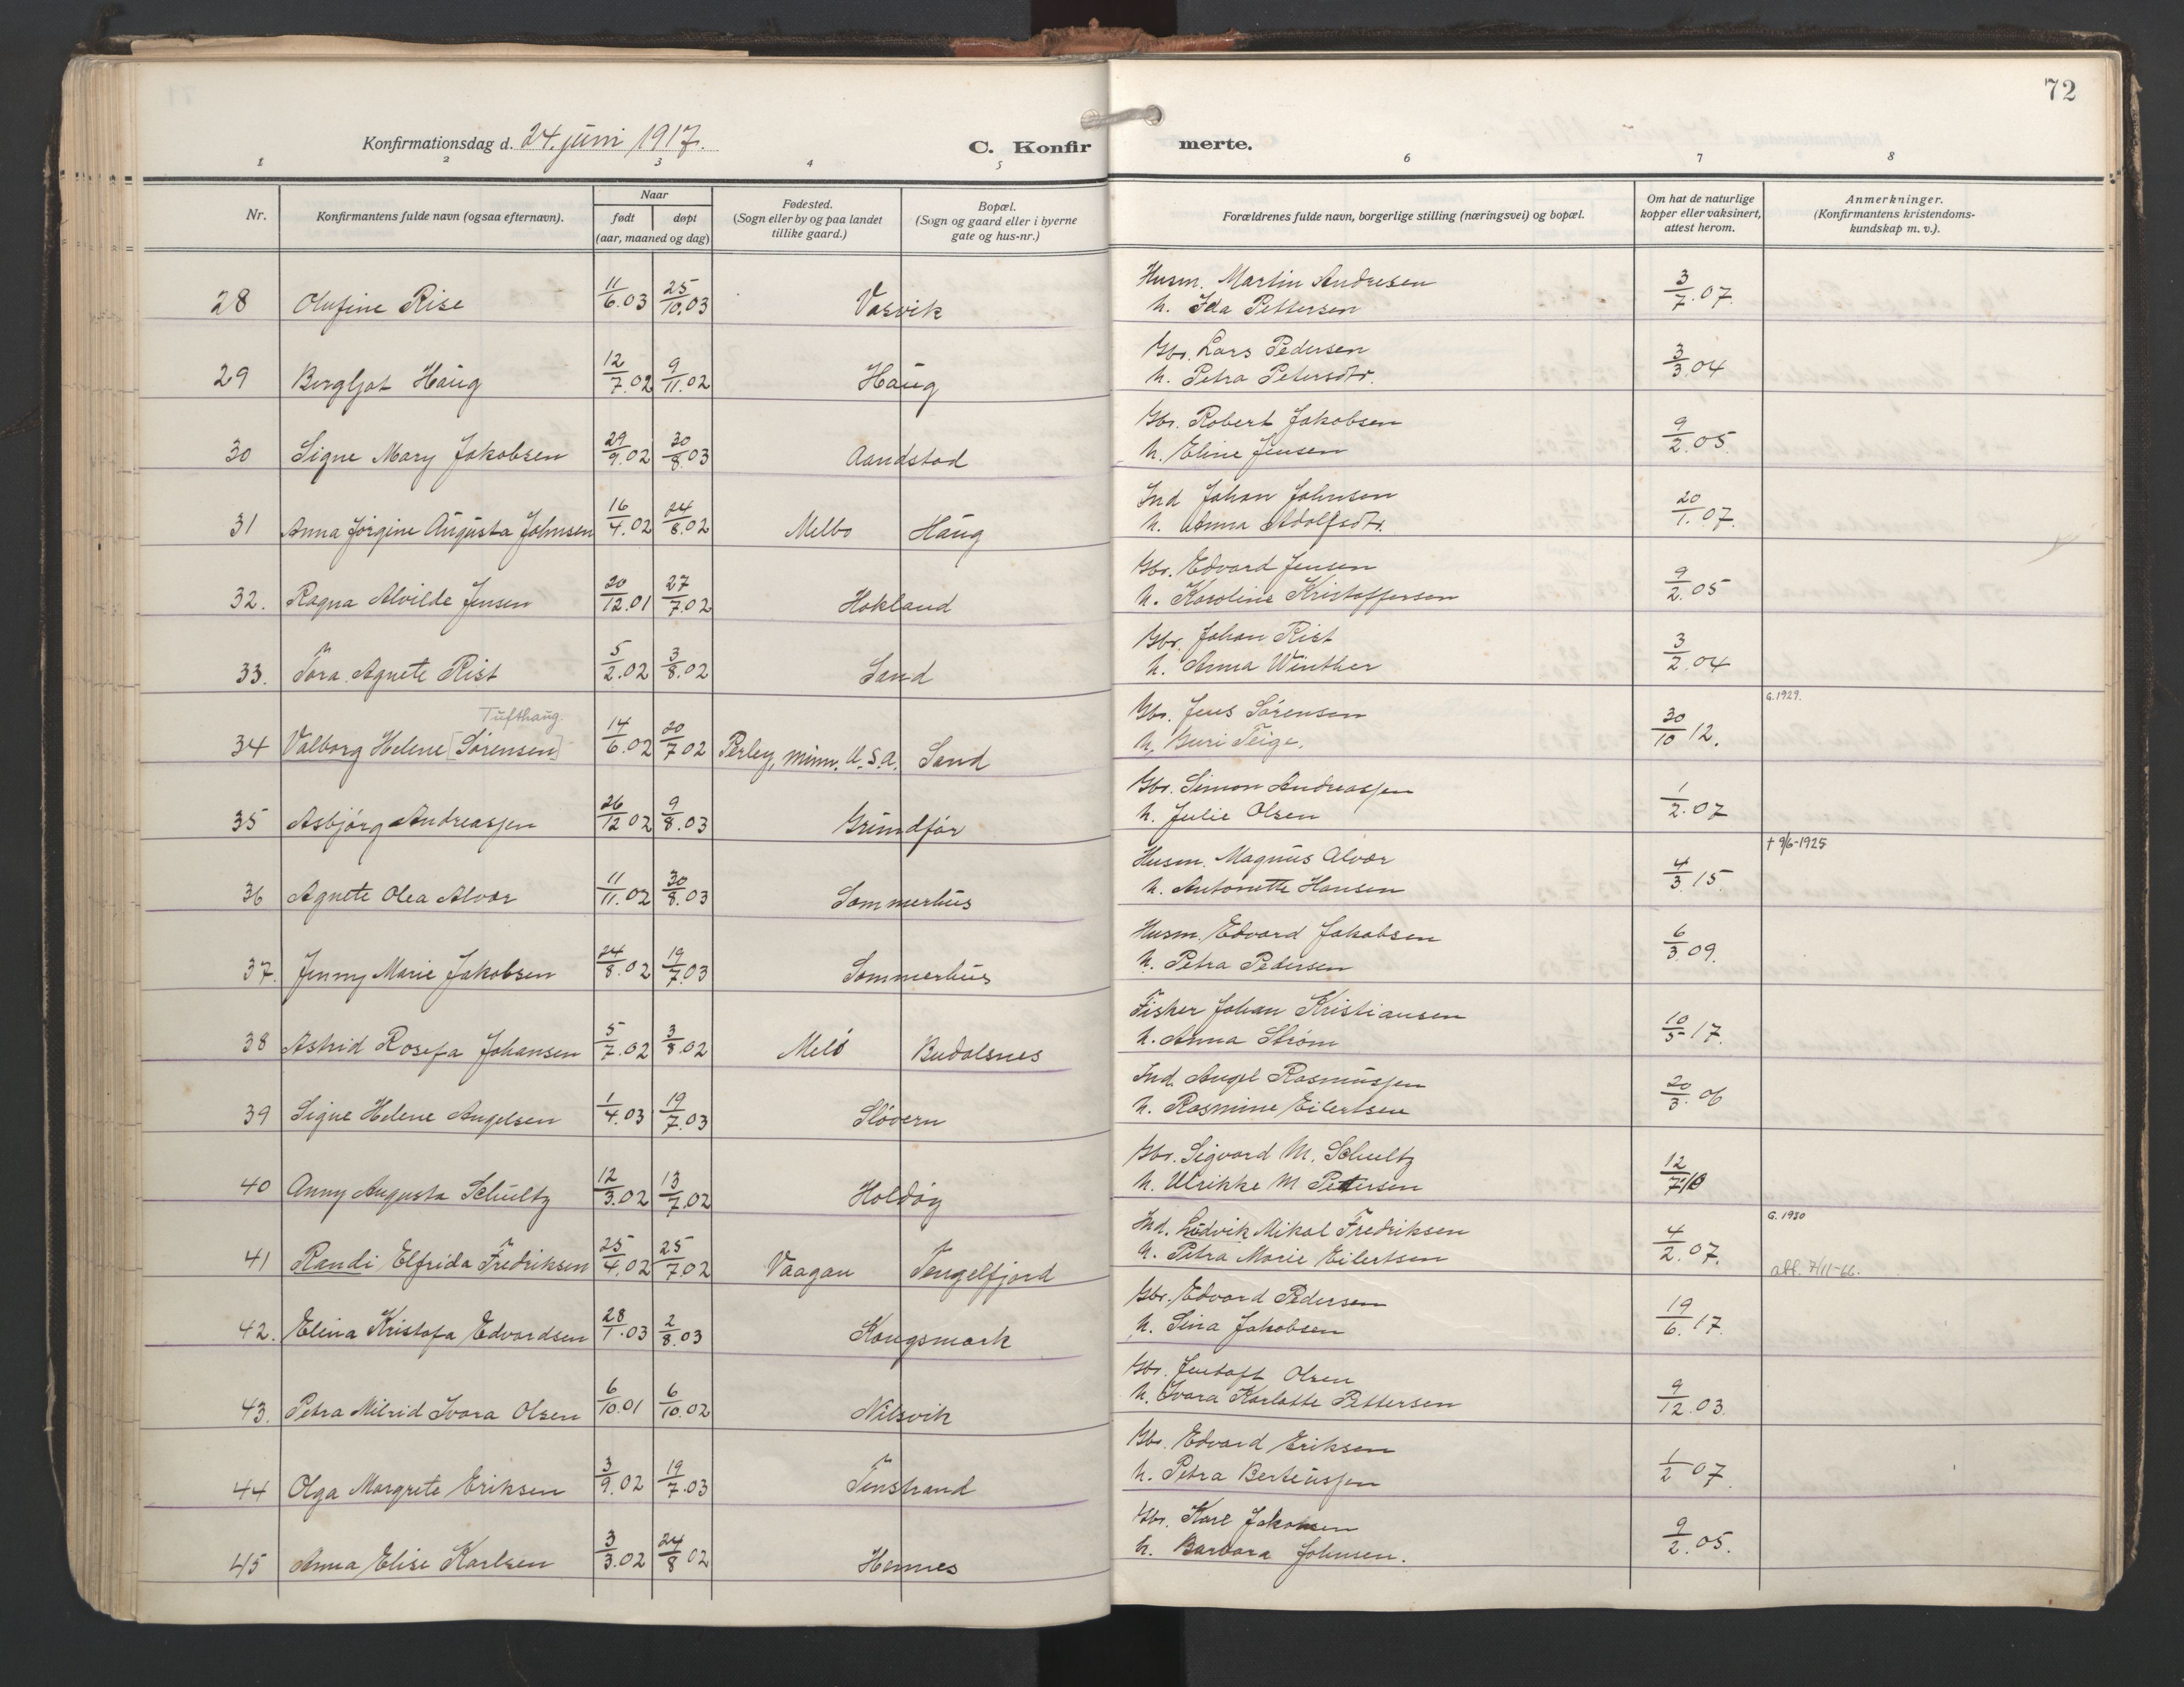 72
Konfirmationsdag d. 24. juni 1917.
C. Konfirmerte.
1 2 3 4 5 6 7 8
Nr.
Konfirmantens fulde navn (ogsaa efternavn).
Naar
født døpt
(aar, maaned og dag)
Fødested.
(Sogn eller by og paa landet
tillike gaard.)
Bopæl.
(Sogn og gaard eller i byerne
gate og hus-nr.)
Forældrenes fulde navn, borgerlige stilling (næringsvei) og bopæl.
Om hat de naturlige
kopper eller vaksinert,
attest herom.
Anmerkninger.
(Konfirmantens kristendoms-
kundskap m. v.).
28 Olufine Rise 11/6.03 25/10.03 Vasvik Husm. Martin Andresen 3/7.07.
h. Ida Pettersen
29 Bergljot Haug 12/7.02 9/11.02 Haug Gbr. Lars Pedersen 3/3.04
h. Petra Petersdtr.
30 Signe Mary Jakobsen 29/9.02 30/8.03 Aandstad Gbr. Robert Jakobsen 9/2.05
h. Eline Jensen
31 Anna Jørgine Augusta Johnsen 16/4.02 24/8.02 Melbo Haug Ind Johan Johnsen 20/1.07.
h. Anna Adolfsdtr.
32. Ragna Alvilde Jensen 20/12.01 27/7.02 Hokland Gbr. Edvard Jensen 9/2.05
h. Karoline Kristoffersen
33. Tora Agnete Rist 5/2.02 3/8.02 Sand Gbr. Johan Rist 3/2.04
h. Anna Winther
Tufthaug.
34 Valborg Helene [Sørensen] 14/6.02 20/7 02 Perley, Minn. U.S.A. Sand Gbr. Jens Sørensen 30/10 12. G. 1929.
h. Guri Teige.
35 Asbjørg Andreassen 26/12 02 9/8.03 Grundfør Gbr. Simon Andreassen 1/2.07
h. Julie Olsen
36 Agnete Olea Alvær 11/11.02 30/8.03 Sommerhus Husm. Magnus Alvær 4/3.15. † 9/6-1925
h. Antonette Hansen
37. Jenny Marie Jakobsen 24/8.02 19/7.03 Sommerhus Husm. Edvard Jakobsen 6/3.09.
h. Petra Pedersen
38 Astrid Rosefa Johansen 5/7.02 3/8.02 Melö Budalsnes Fisker Johan Kristiansen 10/5 17.
h. Anna Strøm
39 Signe Helene Angelsen 1/4.03 19/7.03 Sløvern Ind. Angel Rasmussen 20/3.06
h. Rasmine Eilertsen
40 Anny Augusta Schultz 12/3.02 13/7.02 Holdøy Gbr. Sigvard M. Schultz 12/7.10
h. Ulrikke M Petersen
41 Randi Elfrida Fredriksen 25/4.02 25/7.02 Vaagan Tengelfjord Ind. Ludvik Mikal Fredriksen 4/2.07. G. 1930
h. Petra Marie Eilertsen att. 7/11-66.
42. Elina Kristofa Edvardsen 28/1.03 2/8.03 Kongsmark Gbr. Edvard Pedersen 19/6.17.
h. Sina Jakobsen
43. Petra Milrid Ivara Olsen 6/10.01 6/10.02 Nilsvik Gbr. Jentoft Olsen 9/12.03.
h. Ivara Karlotte Pettersen
44 Olga Margrete Eriksen 3/9.02 19/7.03 Tenstrand Gbr. Edvard Eriksen 1/2 07.
h. Petra Berteussen
45 Anna Elise Karlsen 3/3.02 24/8 02 Hennes Gbr. Karl Jakobsen 9/2.05.
h. Barbara Johnsen.